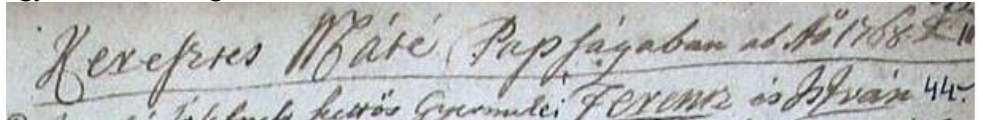 Kerefztes Máté Papságaban ab Aô 1768
kettős Gyermekei Ferentz és István 44.